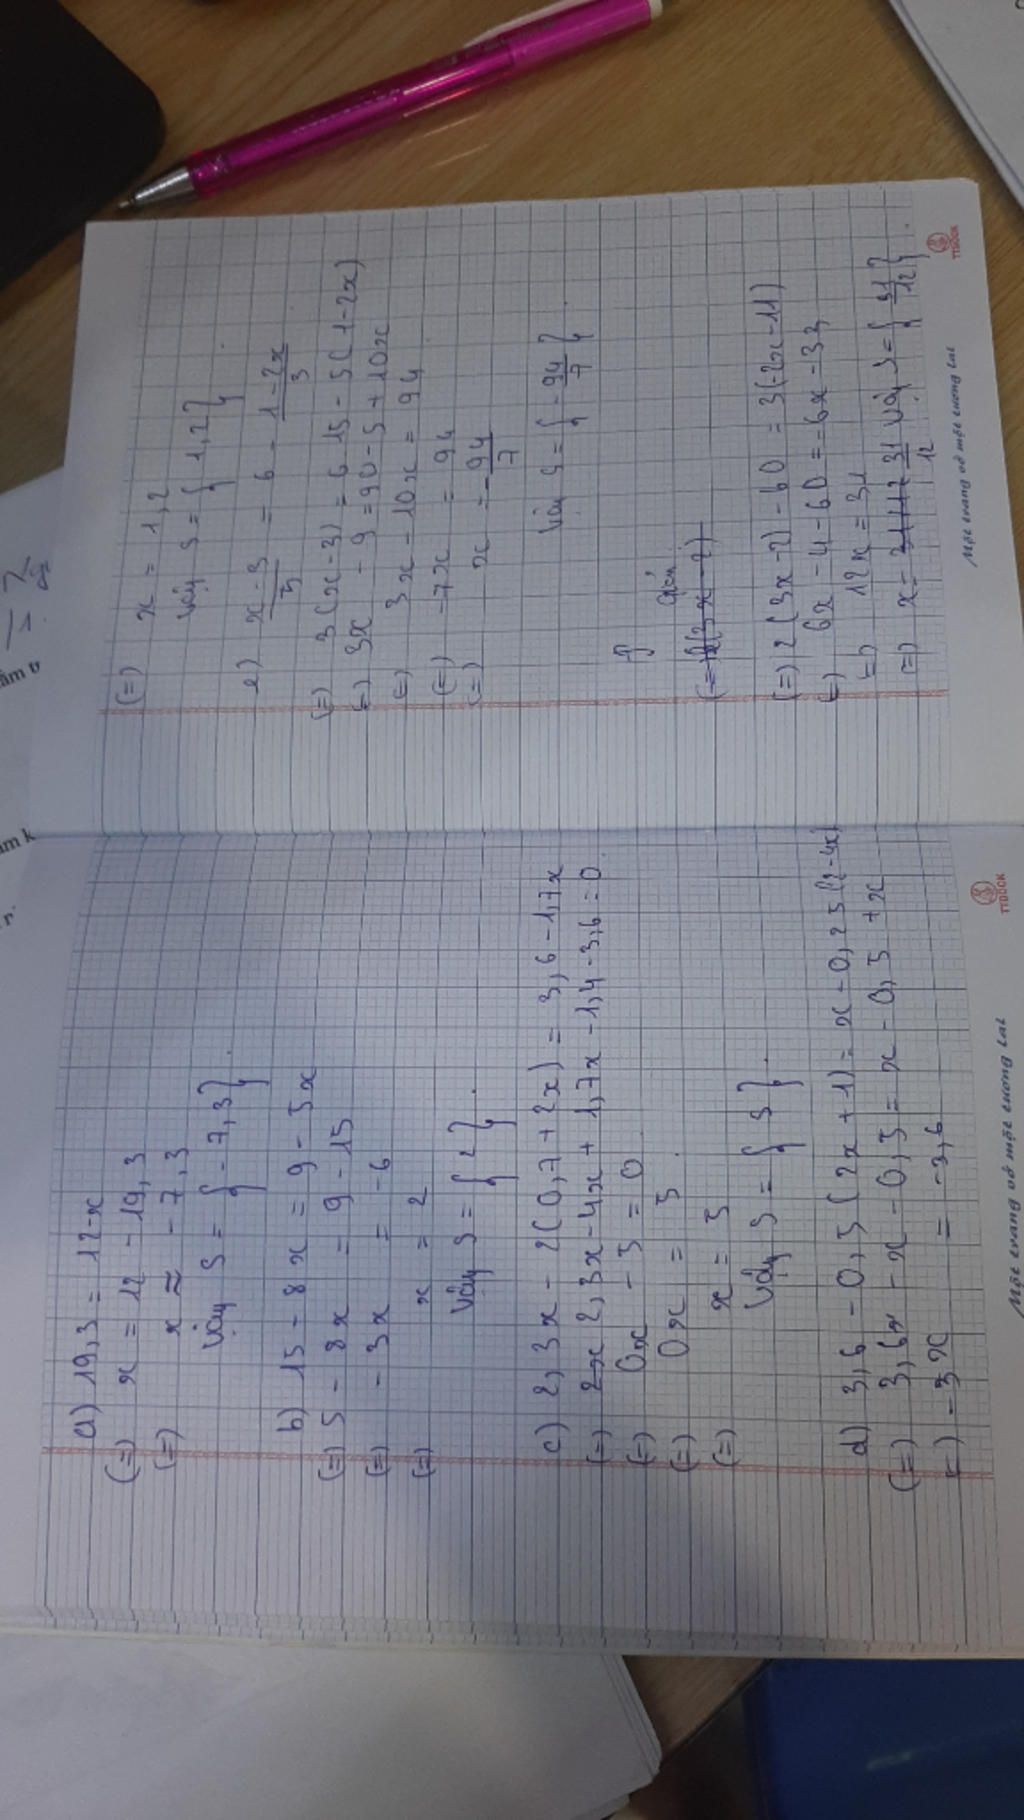 a) 19,3 = 12-x
(=) x = 12 - 19,3
(=) x ≈ - 7,3
Vậy S = { - 7,3 }.
b) 15 - 8x = 9 - 5x
(=) 5 - 8x = 9 - 15
(=) - 3x = -6
(=) x = 2
Vậy S = { 2 }.
c) 2,3x - 2(0,7 + 2x) = 3,6 - 1,7x
(=) 2,3x - 4x + 1,7x - 1,4 - 3,6 = 0
(=) 0x - 5 = 0
(=) 0x = 5
(=) x = 5
Vậy S = { 5 }.
d) 3,6 - 0,5 (2x + 1) = x - 0,25 (2 - 4x)
(=) 3,6x - x - 0,5 = x - 0,5 + x
(=) - 3x = - 3,6
Một trang vở một tương lai
TTBOOK
(=) x = 1,2
Vậy S = { 1,2 }
e) x-3/5 = 6 - 1-2x/3
(=) 3(x-3) = 6 15 - 5(1-2x)
(=) 3x - 9 = 90 - 5 + 10x
(=) 3x - 10x = 94
(=) -7x = 94
(=) x = - 94/7
Vậy S = { - 94/7 }
(=) 2(3x-2) - 60 = 3(-2x-11)
(=) 6x - 4 - 60 = -6x - 33
(=) 12x = 31
(=) x = 31/12 Vậy S = { 31/12 }.
Một trang vở một tương lai
TTBOOK